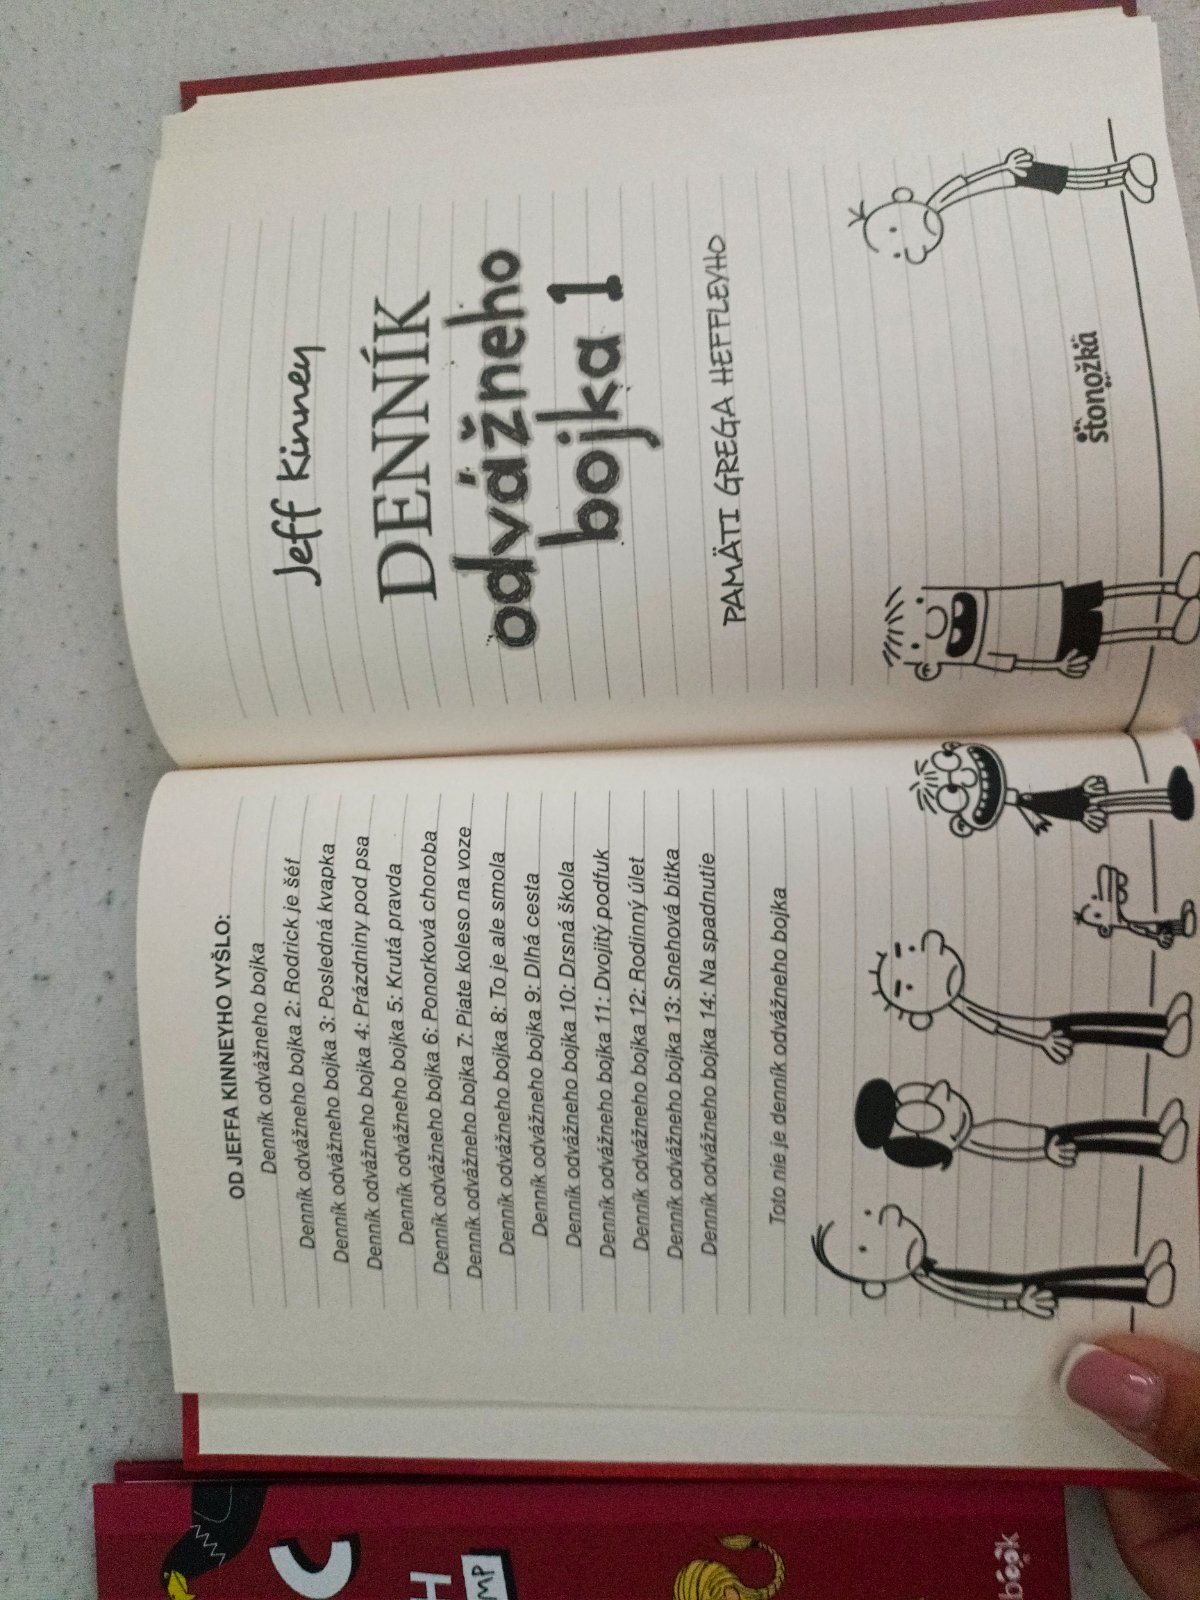 OD JEFFA KINNEYHO VYŠLO:
Denník odvážneho bojka
Denník odvážneho bojka 2: Rodrick je šéf
Denník odvážneho bojka 3: Posledná kvapka
Denník odvážneho bojka 4: Prázdniny pod psa
Denník odvážneho bojka 5: Krutá pravda
Denník odvážneho bojka 6: Ponorková choroba
Denník odvážneho bojka 7: Piate koleso na voze
Denník odvážneho bojka 8: To je ale smola
Denník odvážneho bojka 9: Dlhá cesta
Denník odvážneho bojka 10: Drsná škola
Denník odvážneho bojka 11: Dvojitý podfuk
Denník odvážneho bojka 12: Rodinný úlet
Denník odvážneho bojka 13: Snehová bitka
Denník odvážneho bojka 14: Na spadnutie
Toto nie je denník odvážneho bojka
Jeff Kinney
DENNÍK
odvážneho
bojka 1
PAMÄTI GREGA HEFFLEYHO
stonožka
C
H
MP
book